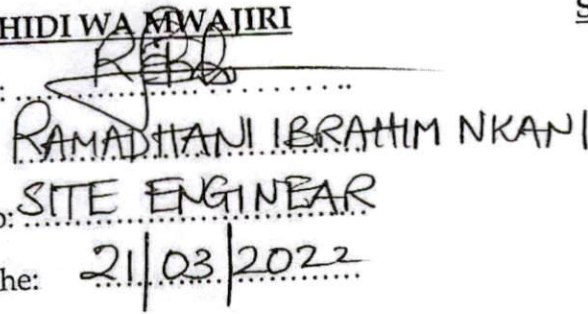 HIDI WA MWAJIRI
S
:
RAMADHANI IBRAHIM NKANI
o: SITE ENGINEAR
he: 21/03/2022